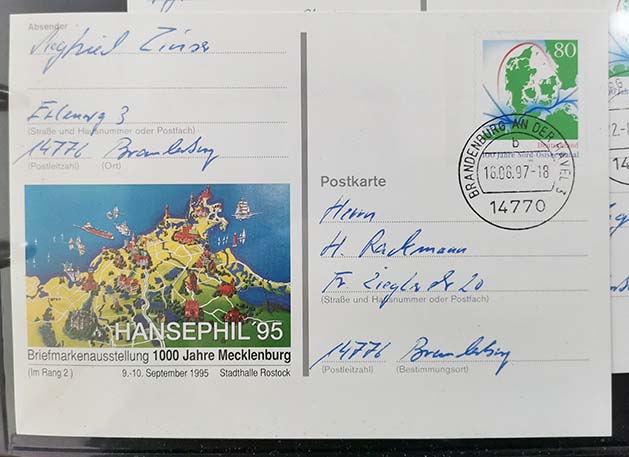 Absender
Siegfried Zinser
Erlenweg 3
(Straße und Hausnummer oder Postfach)
14776 Brandenburg
(Postleitzahl) (Ort)
HANSEPHIL '95
Briefmarkenausstellung 1000 Jahre Mecklenburg
(Im Rang 2) 9.-10. September 1995 Stadthalle Rostock
80
Deutschland
100 Jahre Nord-Ostsee-Kanal
BRANDENBURG AN DER HAVEL 3
b
16.06.97-18
14770
Postkarte
Herrn
H. Rackmann
Fr. Ziegler 20
(Straße und Hausnummer oder Postfach)
14776 Brandenburg
(Postleitzahl) (Bestimmungsort)